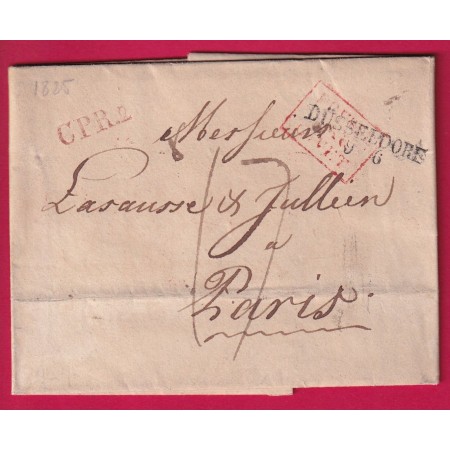 1825
C.P.R.2
DÜSSELDORF
Messieurs
Lasausse & Jullien
a
Paris.
17